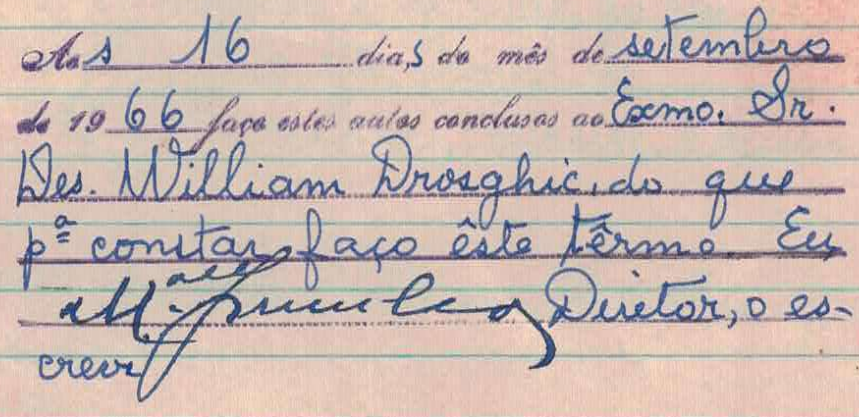 Aos 16 dias do mês de setembro
de 1966 faço estes autos conclusos ao Exmo. Sr.
Des. William Drosghic, do que
pª constar, faço êste têrmo. Eu,
Diretor, o es-
crevi